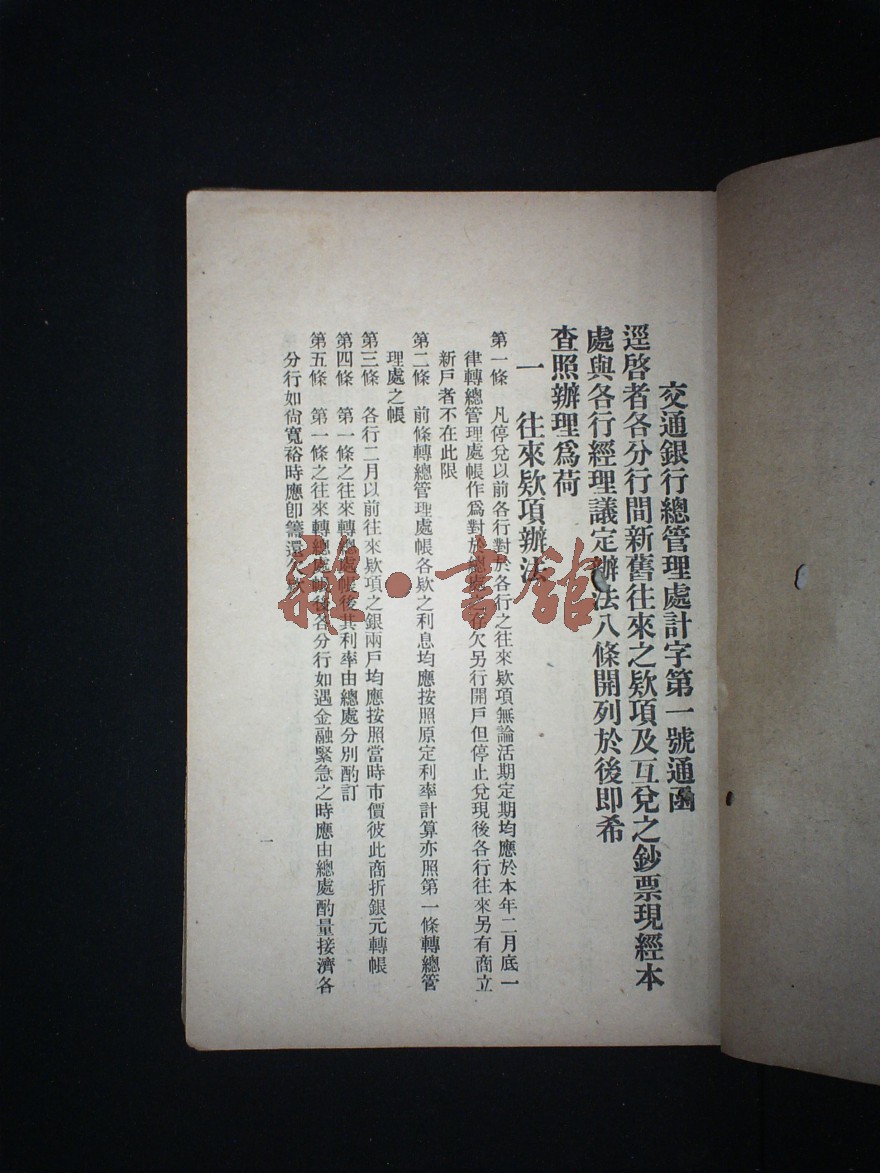 交通銀行總管理處計字第一號通函
逕啓者各分行間新舊往來之欵項及互兌之鈔票現經本
處與各行經理議定辦法八條開列於後即希
查照辦理爲荷
一　往來欵項辦法
第一條　凡停兌以前各行對於各行之往來欵項無論活期定期均應於本年二月底一
律轉總管理處帳作爲對於總處存欠另行開戶但停止兌現後各行往來另有商立
新戶者不在此限
第二條　前條轉總管理處帳各欵之利息均應按照原定利率計算亦照第一條轉總管
理處之帳
第三條　各行二月以前往來欵項之銀兩戶均應按照當時市價彼此商折銀元轉帳
第四條　第一條之往來轉總處帳後其利率由總處分別酌訂
第五條　第一條之往來轉總處帳後各分行如遇金融緊急之時應由總處酌量接濟各
分行如尙寬裕時應卽籌還欠欵
一
雜·書館